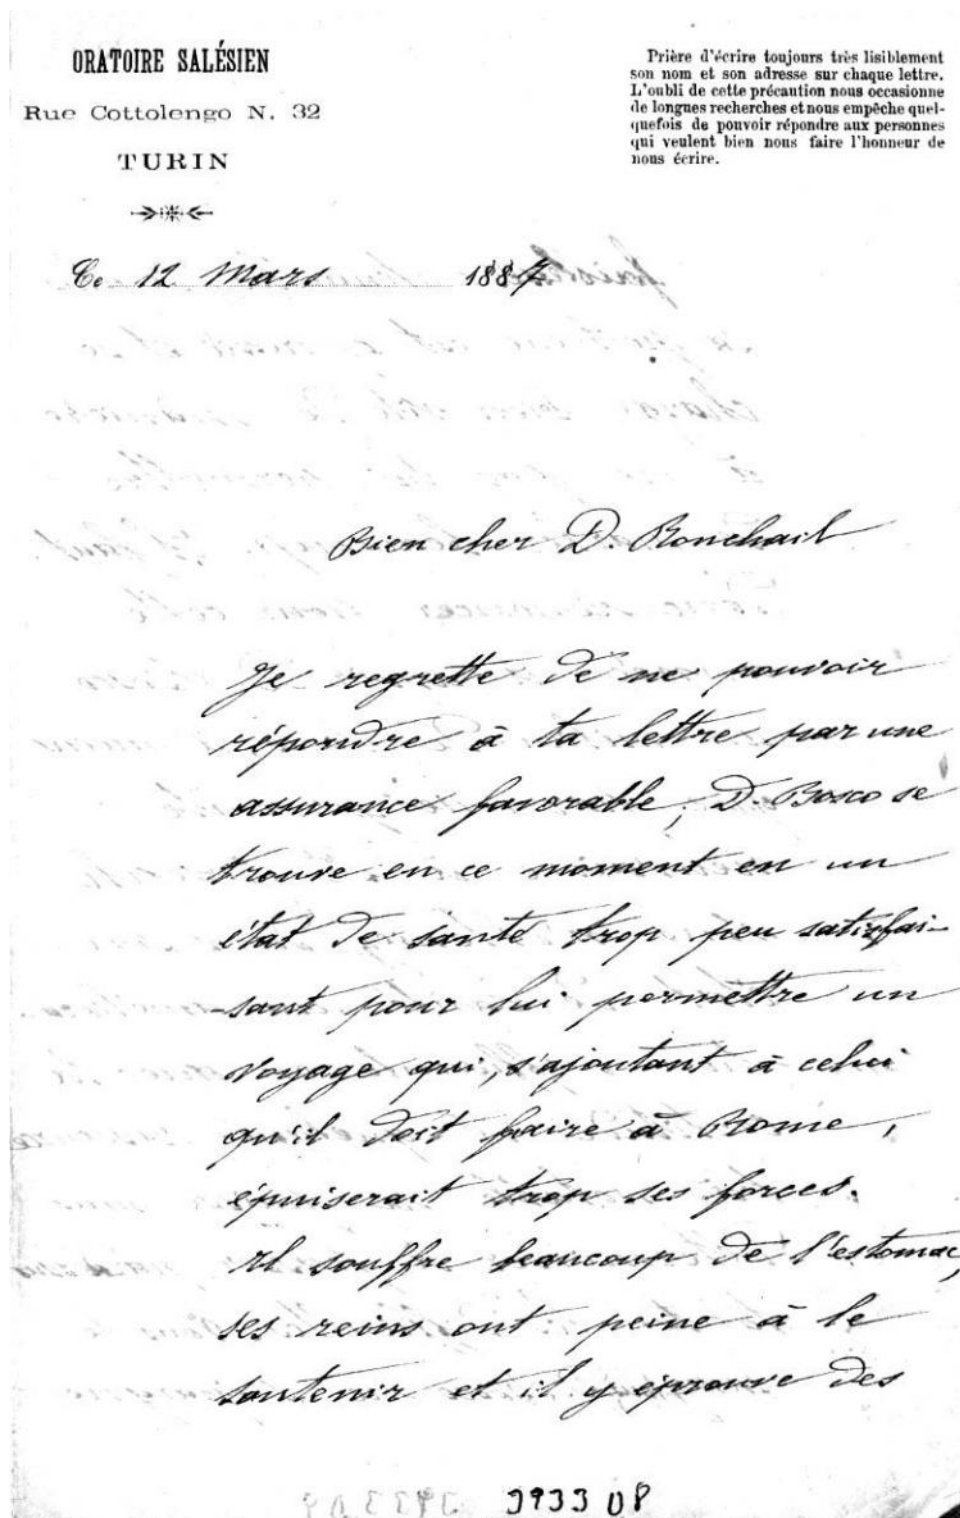 ORATOIRE SALÉSIEN
Rue Cottolengo N. 32
TURIN
Prière d'écrire toujours très lisiblement
son nom et son adresse sur chaque lettre.
L'oubli de cette précaution nous occasionne
de longues recherches et nous empêche quel-
quefois de pouvoir répondre aux personnes
qui veulent bien nous faire l'honneur de
nous écrire.
Ce 12 Mars 1887
Bien cher D. Ronchail
Je regrette de ne pouvoir
répondre à ta lettre par une
assurance favorable, D. Bosco se
trouve en ce moment en un
état de santé trop peu satisfai-
sant pour lui permettre un
voyage qui, s'ajoutant à celui
qu'il doit faire à Rome,
épuiserait trop ses forces.
Il souffre beaucoup de l'estomac,
ses reins ont peine à le
soutenir et il y éprouve des